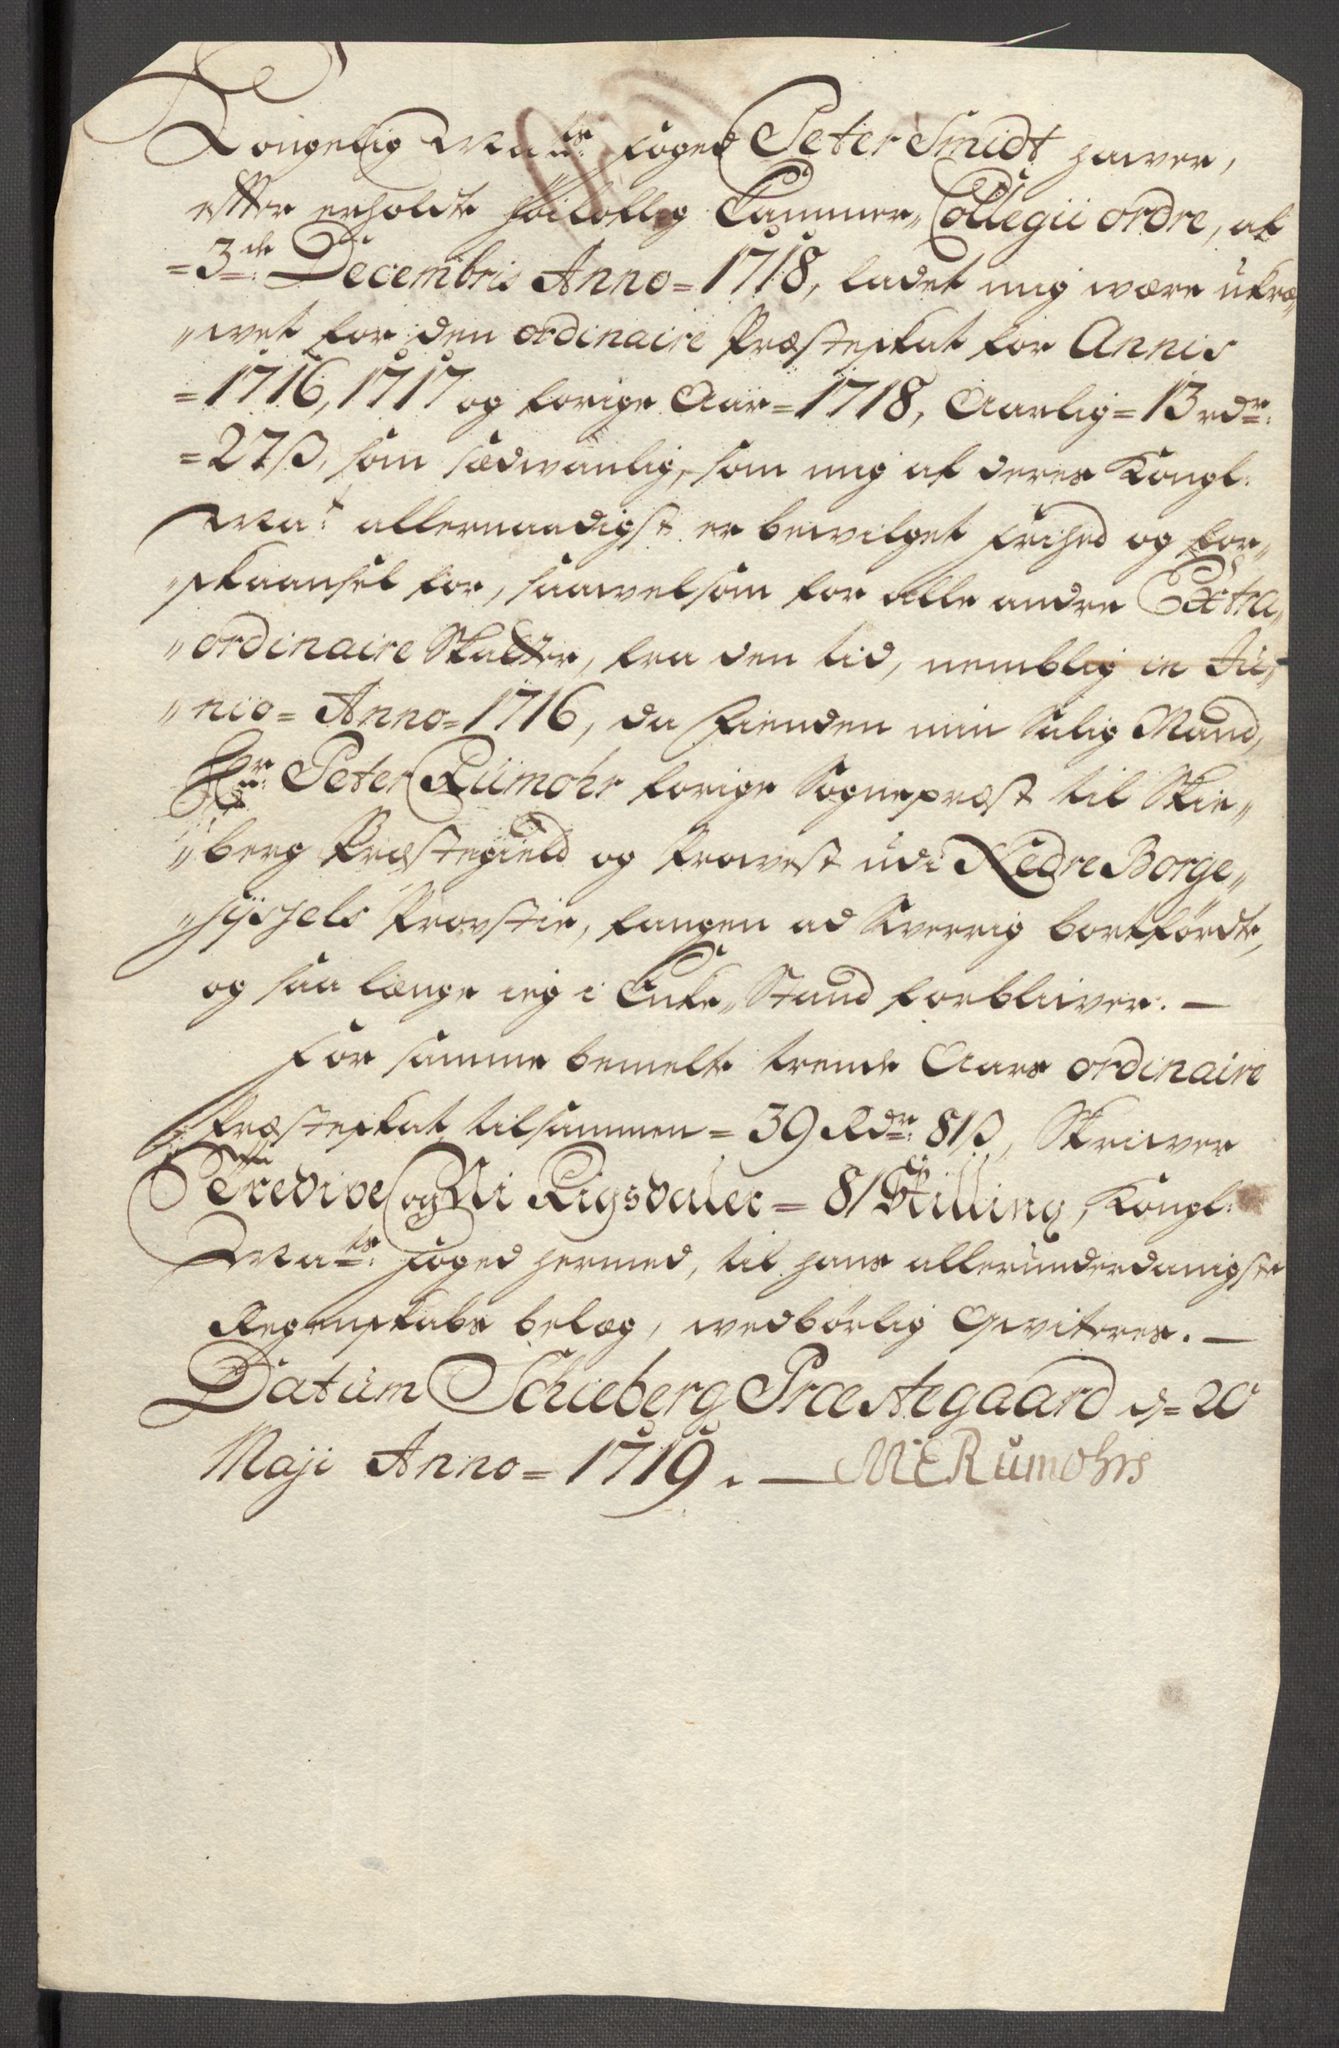 Kongelig Maÿts: foged Peter Smidt hawer,
effter erholdte höiloflig Cammer„Collegii ordre, af
=3de: Decembris Anno=1718, ladet mig wære ukræ„
„wet for den ordinaire Præsteskat for Annis
=1716, 1717 og forige Aar=1718, Aarlig=13 rdr:
=27ß, som sædwanlig, som mig af deres Kongl:
Mat allernaadigst er bewilget frihed og for„
„skaansel for, saawelsom for alle andre Extra„
„ordinaire Skatter, fra den tid, nemblig in Ju„
„nio=Anno=1716, da Fienden min Salig Mand,
Hr: Peter Rumohr forige Sognepræst til Skie„
„berg Præstegield og Prowest udi Nedre Borge„
„sÿssels Provstie, fangen ad Sverrig bortførdte,
og saa længe ieg i Enke„Stand forbliiver. —
For samme bemelte trende Aars ordinaire
Præsteskat tilsammen=39 Rdr: 81ß, Skriiver
Tredive og Ni Rigsdaler=81 Skilling, Kongl:
Mats: foged hermed, til hans allerunderdanigste
Regenskabs belæg, wedbörlig Qviteres. —
Datum Schieberg Præstegaard d=20
Maji Anno=1719. — MERumohrs